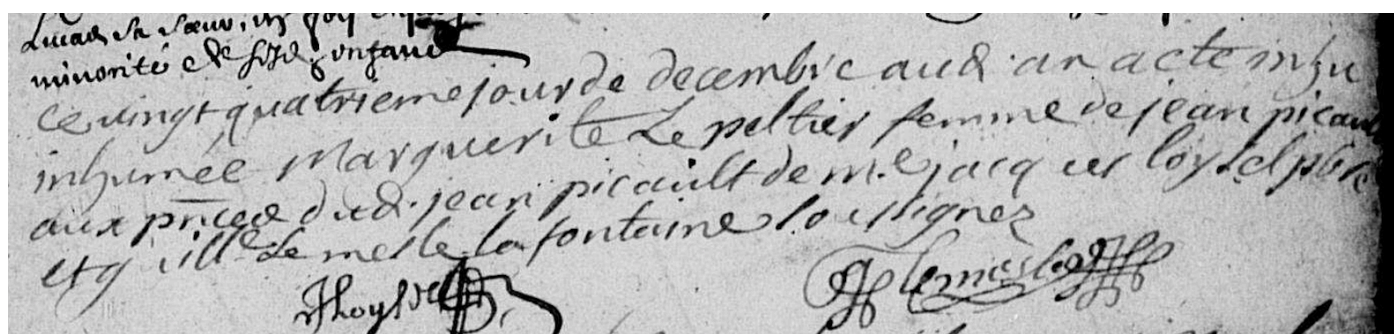 sa sœur,
minorité
ce vingt quatrieme jour de decembre aud an acté inhu
inhumée Marguerite Le peltier femme de jean picault
aux pñces dud. jean picault de mᵉ jacques loysel pbre
et guillᵉ Le mesle la fontaine soussignez
JLoysel
G Lemesle